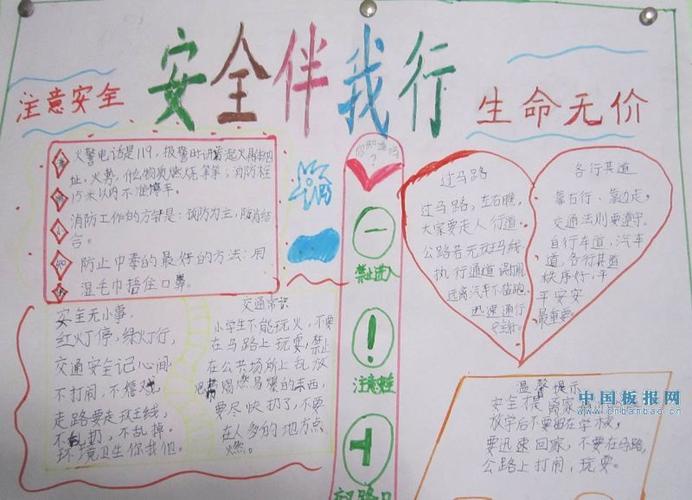 安全伴我行
注意安全
生命无价
火警电话是119，报警时讲清起火具体地
址，火势，什么物质燃烧等等；消防栓
15米以内不准停车。
消防工作的方针是：预防为主，防消结
合。
防止中毒的最好的方法：用
湿毛巾捂住口鼻。
安全无小事。
红灯停，绿灯行，
交通安全记心间
不打闹，不嬉戏
走路要走斑马线
不乱扔，不乱掉。
环境卫生你我他。
交通常识
小学生不能玩火，不要
在马路上玩耍，禁止
在公共场所上乱放
易燃易爆的东西，
要尽快扔了，不要
在人多的地方点
燃。
你知道吗
？
禁止进入
注意
过马路
过马路，左右瞧，
大家要走人行道。
公路若无斑马线
执行通道
远离汽车不苗跑，
迅速通行
各行其道
靠右行，靠边走，
交通法则要遵守。
自行车道，汽车
道，各行其道
秩序好，平
平安安
最重要
温馨提示
安全
放学后不要留在学校，
要迅速回家，不要在马路，
公路上打闹，玩耍。
中国板报网
www.cnbanbao.cn